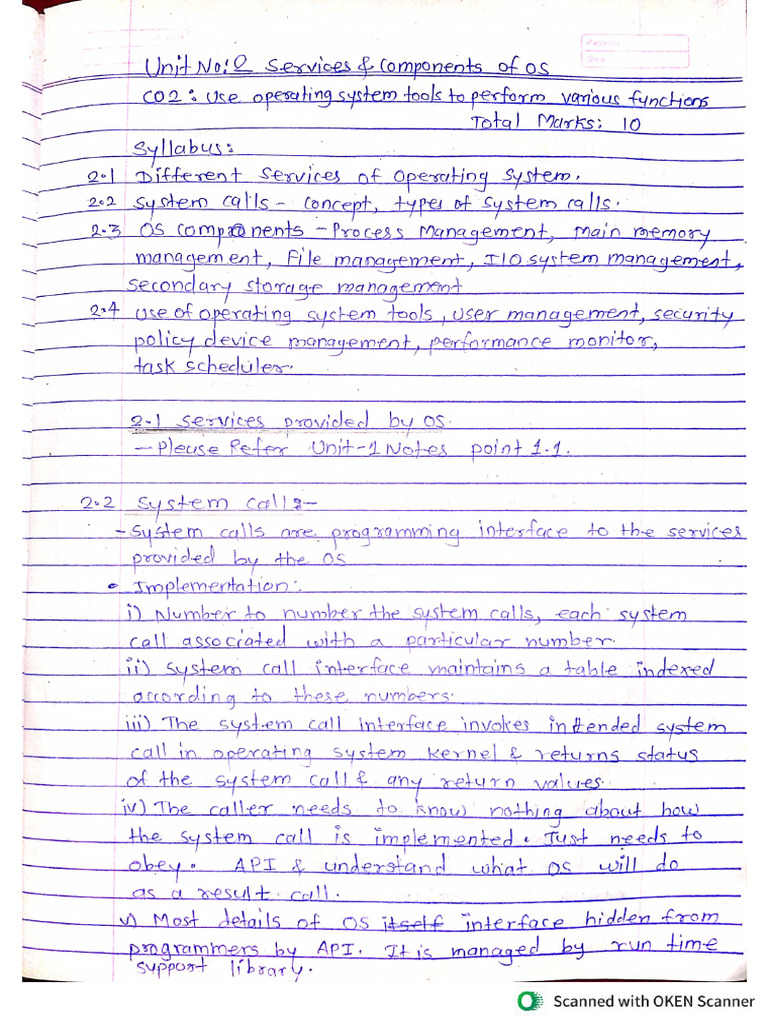 Page No.
Date
Unit No:2 Services & Components of OS
CO2: Use operating system tools to perform various functions
Total Marks: 10
Syllabus:
2.1 Different Services of Operating System.
2.2 System Calls - Concept, types of System Calls.
2.3 OS Components - Process Management, Main memory
management, File management, I/O system management,
secondary storage management
2.4 Use of operating system tools, user management, security
policy device management, performance monitor,
task scheduler.
2.1 Services provided by OS.
- Please Refer Unit-1 Notes point 1.1.
2.2 System Calls:-
- System calls are programming interface to the services
provided by the OS
• Implementation:
i) Number to number the system calls, each system
call associated with a particular number.
ii) System call interface maintains a table indexed
according to these numbers.
iii) The system call interface invokes intended system
call in operating system kernel & returns status
of the system call & any return values.
iv) The caller needs to know nothing about how
the system call is implemented. Just needs to
obey. API & understand what OS will do
as a result call.
v) Most details of OS itself interface hidden from
programmers by API. It is managed by run time
support library.
Scanned with OKEN Scanner